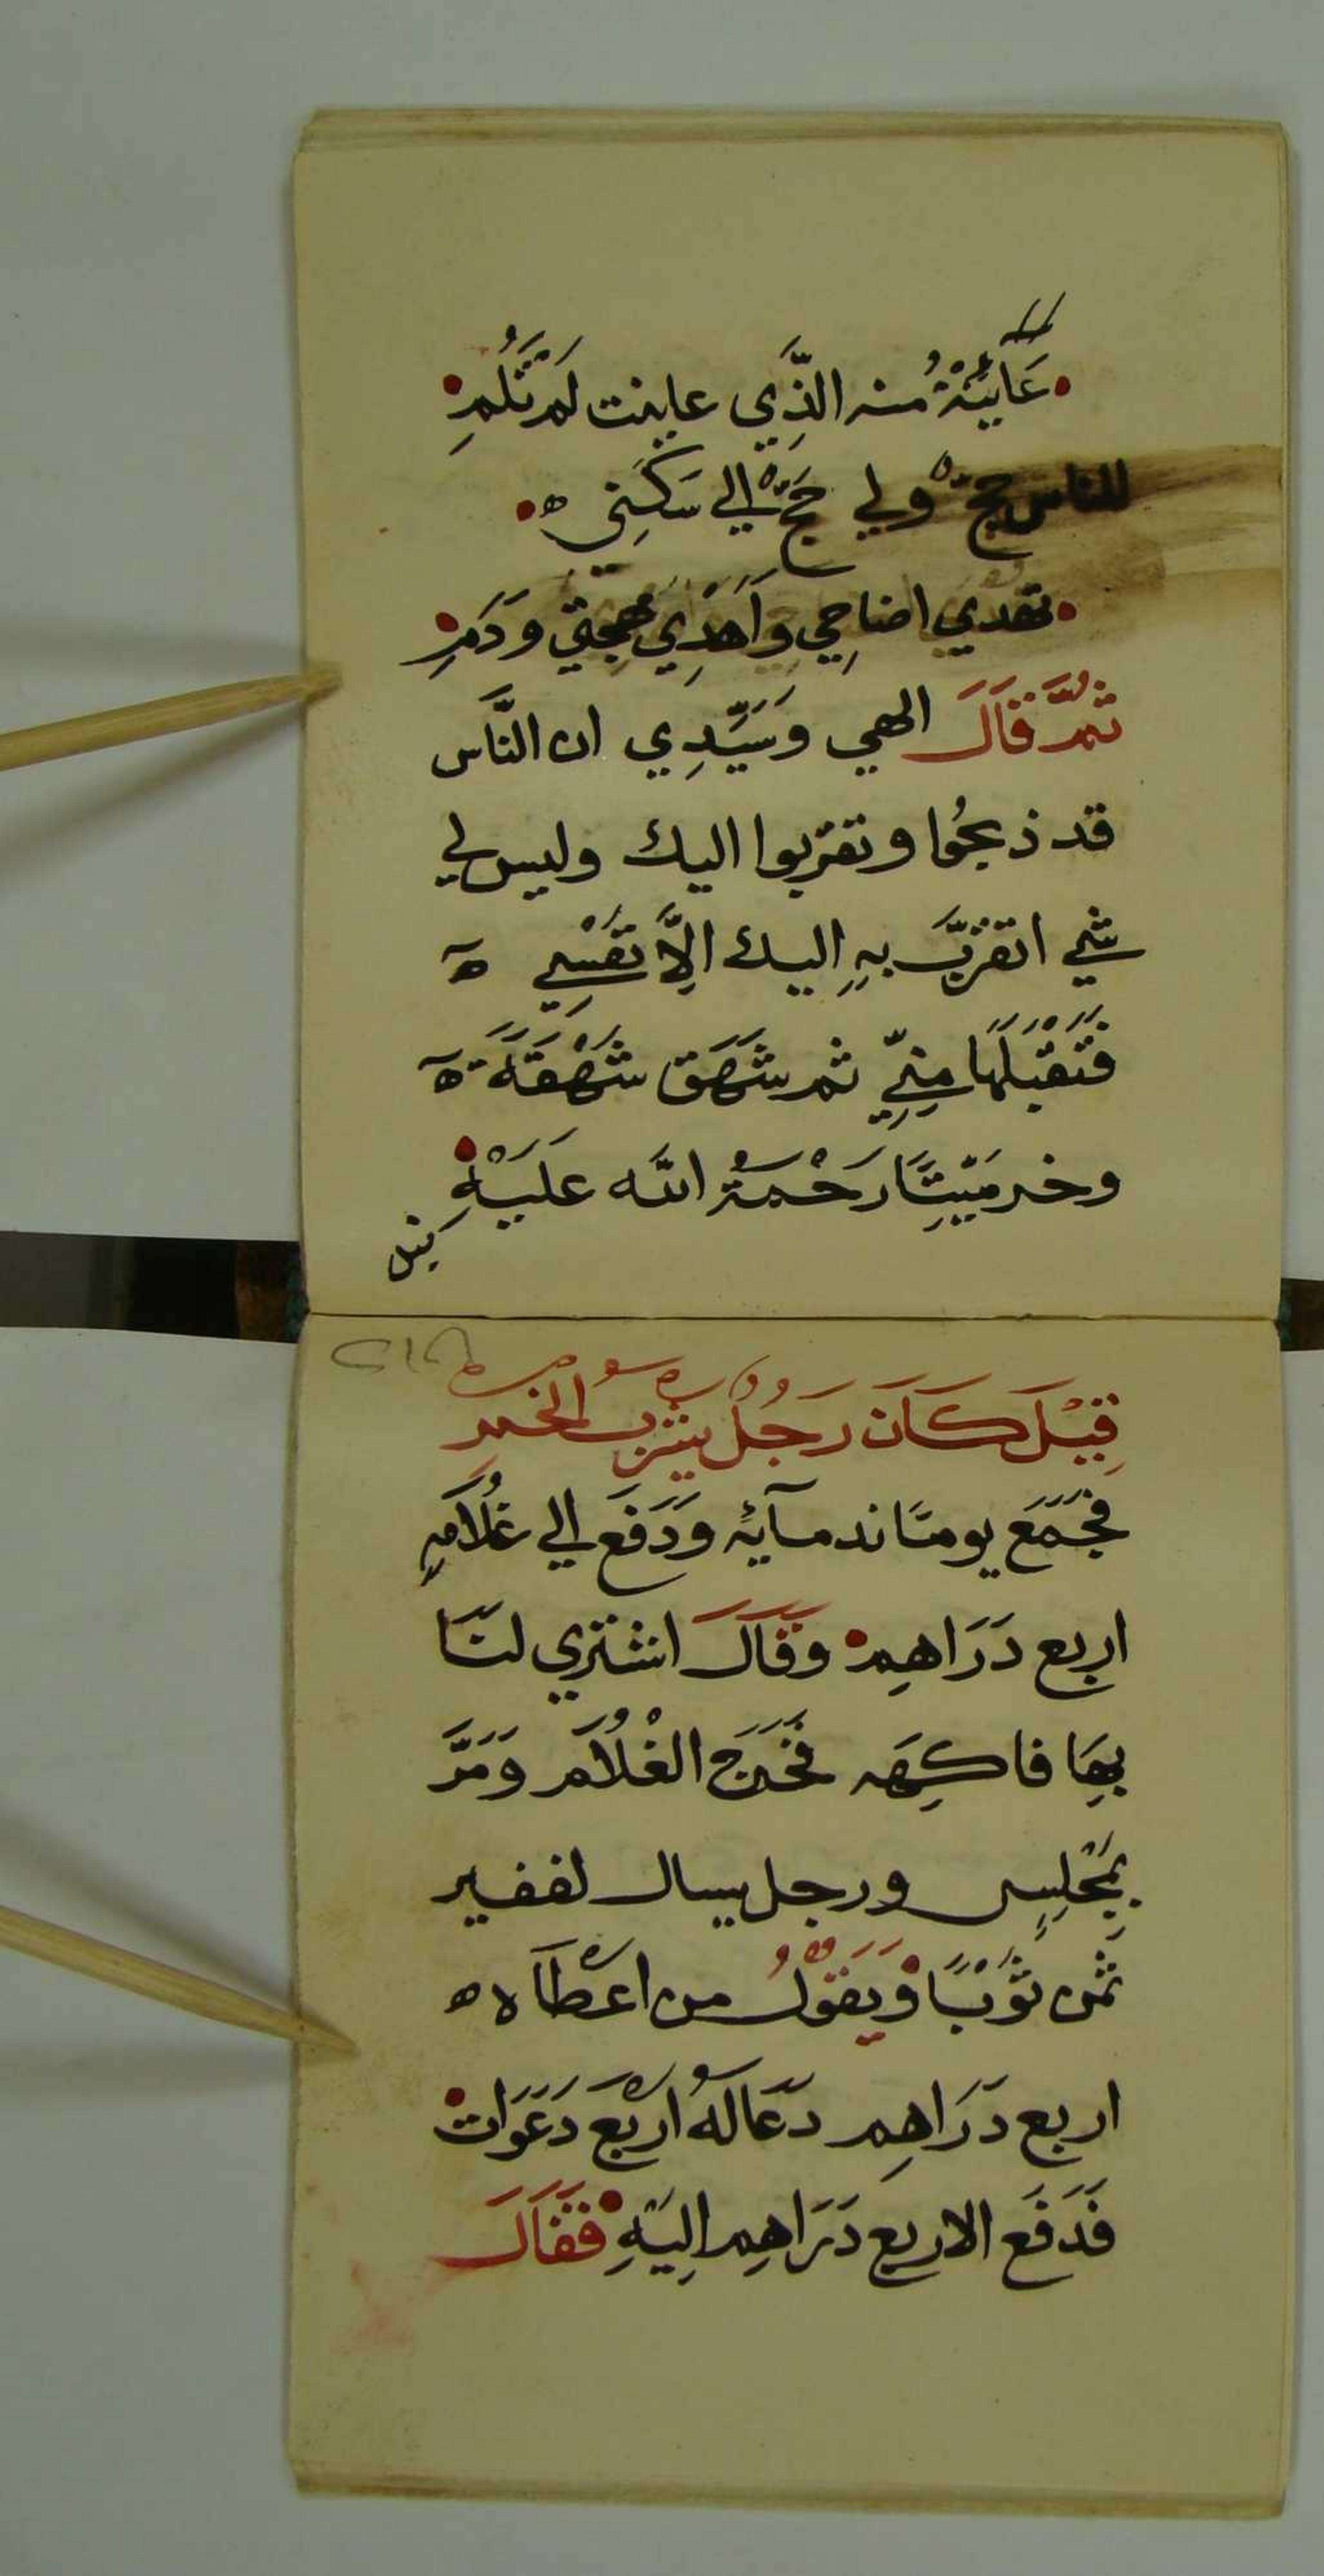 عَايَنْتُ منه الذَّي عاينت لَمْ تَلُمِ
للناس حجّ ولي حَجّ الي سَكَنِي ه
تهدي اضاحِي وَاَهْدِي مُهجتي وَدَمِ
ثُمَّ قَالَ الهي وَسَيِّدِي ان النَّاس
قد ذبحُوا وتقربوا اليك وليس لي
شي اتقربّ بهِ اليك الِاَّ نَفْسِي ه
فَتَقْبَلَهَا مِنِّي ثم شَهَقَ شَهْقَةً ه
وخر مَيّتًا رَحْمَةُ الله عَلَيْهِ
قيل
قِيْلَ كَانَ رَجُلٌ يشْربُ الخمرِ
فَجَمَعَ يومًا ندمآئهِ وَدَفَع الي غُلَامهِ
اربع دَرَاهِم وَقَالَ اشتري لنَا
بهَا فاكِهَه فَخَرَجَ الغْلُامَ وَمَرَّ
بِمَجْلِسٍ ورجل يسال لفقير
ثمن ثَوْبًا وَيَقوْلُ من اعْطَاه ه
اربع دَرَاهِم دَعَا لَهُ ارْبَع دَعَوَات
فَدَفَع الاربع دَرَاهِم اِليَهِ فَقَالَ